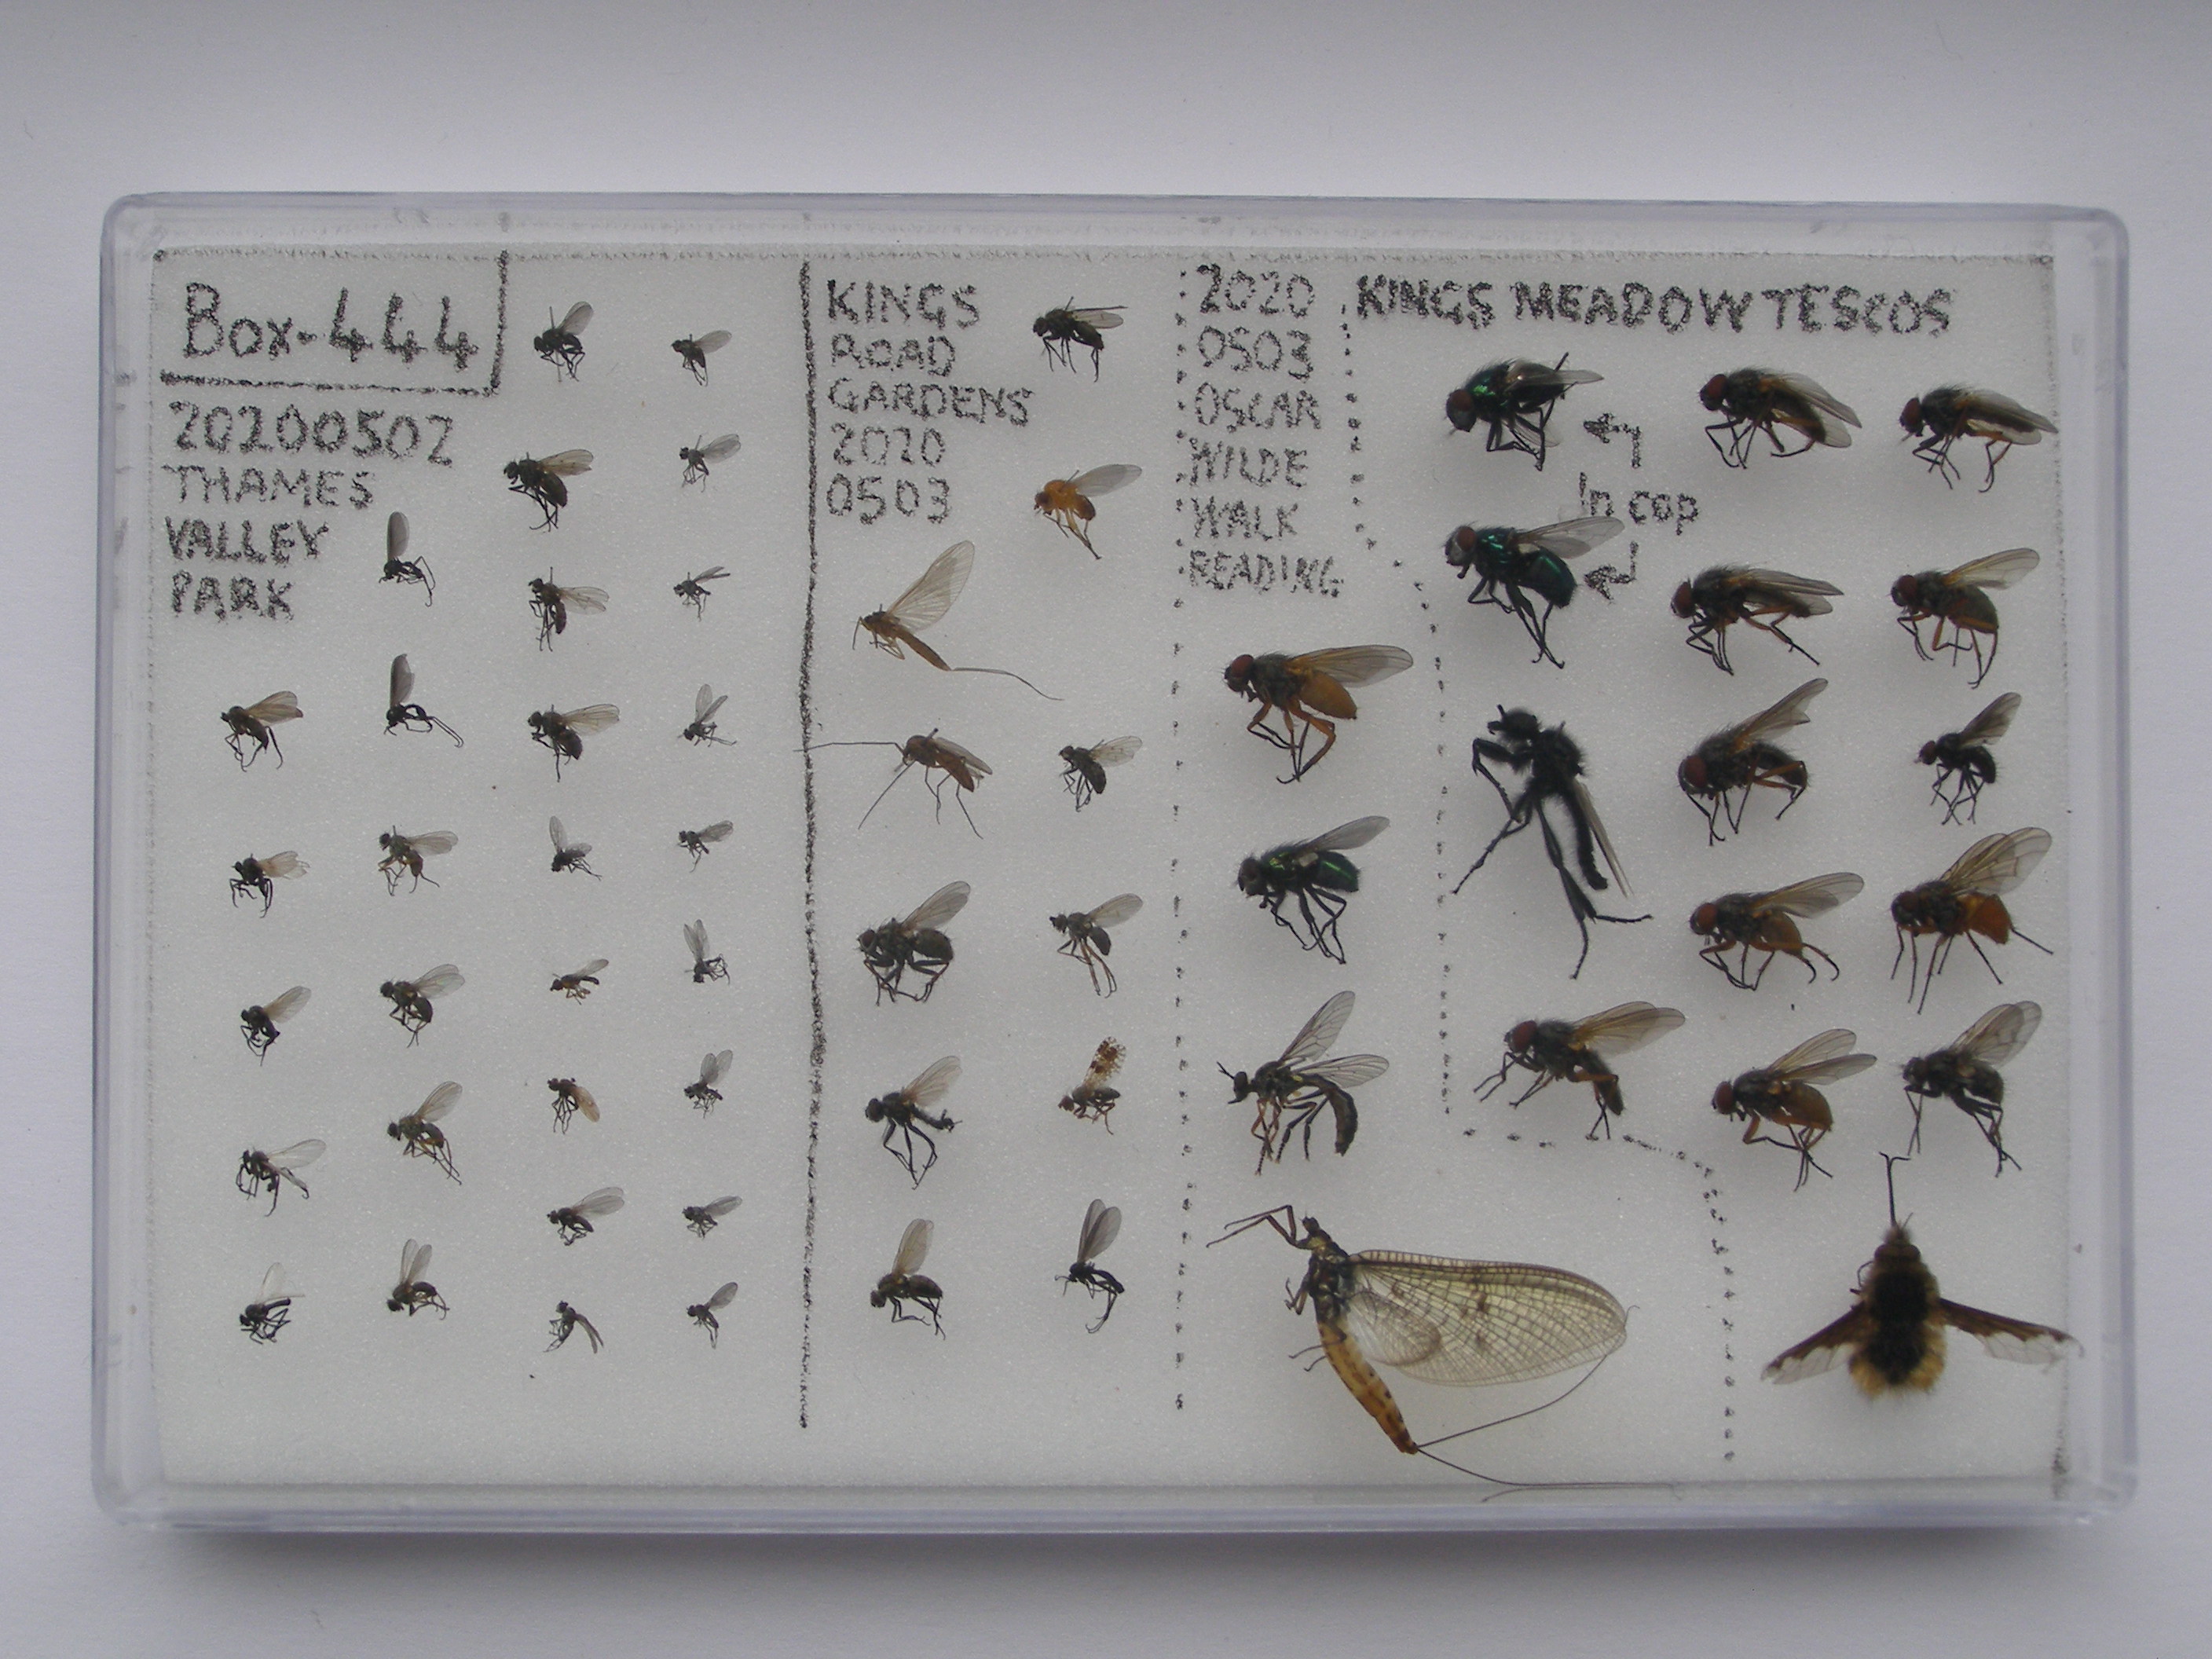 Box-444
20200502
THAMES
VALLEY
PARK
KINGS
ROAD
GARDENS
2020
0503
2020
0503
OSCAR
WILDE
WALK
READING
KINGS MEADOW TESCOS
in cop